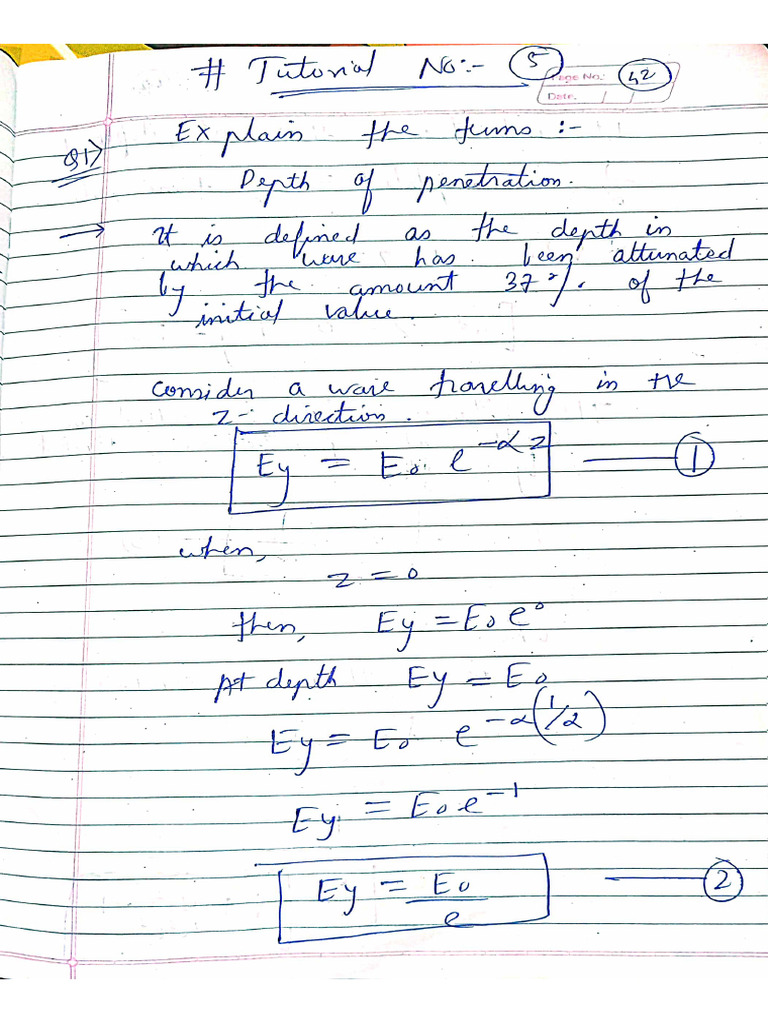 # Tutorial No:- 5
Page No. 42
Date. / /
Q1>
Explain the terms :-
Depth of penetration.
→ It is defined as the depth in
which wave has been attunated
by the amount 37% of the
initial value.
Consider a wave travelling in +ve
z- direction.
Ey = E₀. e^-αz — 1
when,
z = 0
then, Ey = E₀ e⁰
At depth Ey = E₀
Ey = E₀ e^-α(1/α)
Ey = E₀ e^-1
Ey = E₀/e — 2